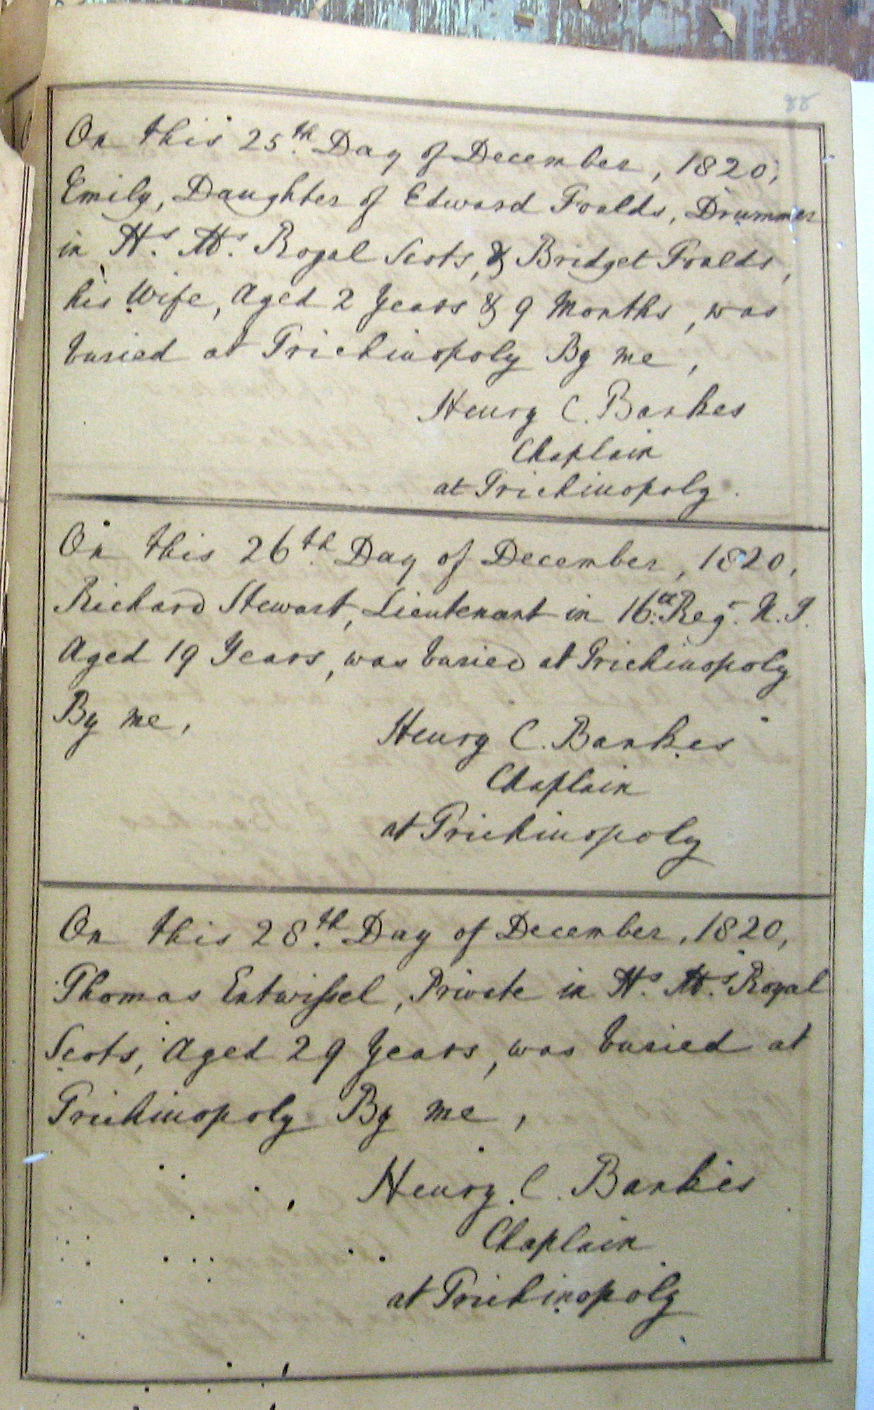 88
On this 25th Day of December, 1820,
Emily, Daughter of Edward Foalds, Drummer
in Hs. Ms. Royal Scots, & Bridget Foalds,
his Wife, Aged 2 Years & 9 Months, was
buried at Trichinopoly By me,
Henry C. Bankes
Chaplain
at Trichinopoly.
On this 26th Day of December, 1820,
Richard Stewart, Lieutenant in 16th Regt. N. I.
Aged 19 Years, was buried at Trichinopoly
By me,
Henry C. Bankes
Chaplain
at Trichinopoly
On this 28th Day of December, 1820,
Thomas Entwissel, Private in Hs. Ms. Royal
Scots, Aged 29 Years, was buried at
Trichinopoly By me,
Henry C. Bankes
Chaplain
at Trichinopoly